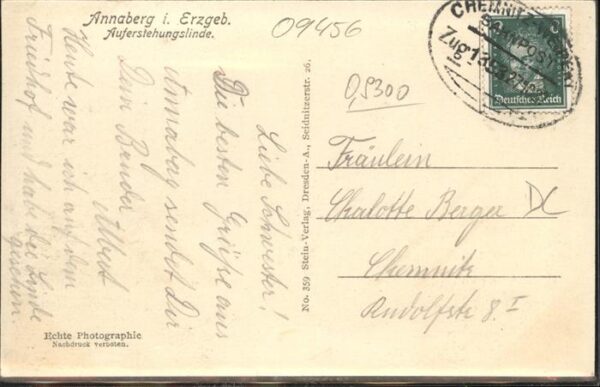 Annaberg i. Erzgeb.
Auferstehungslinde.
09456
CHEMNITZ
BAHNPOST
Zug
Deutsches Reich
0,5300
Liebe Schwester!
Die besten Grüße aus
Annaberg sendet Dir
Dein Bruder
Albert
Heute war ich auf dem
Friedhof und habe die Linde
gesehen
No. 359 Stein-Verlag, Dresden-A., Seidnitzerstr. 26.
Fräulein
Charlotte Berger
Chemnitz
Rudolfstr 8 I
Echte Photographie
Nachdruck verboten.